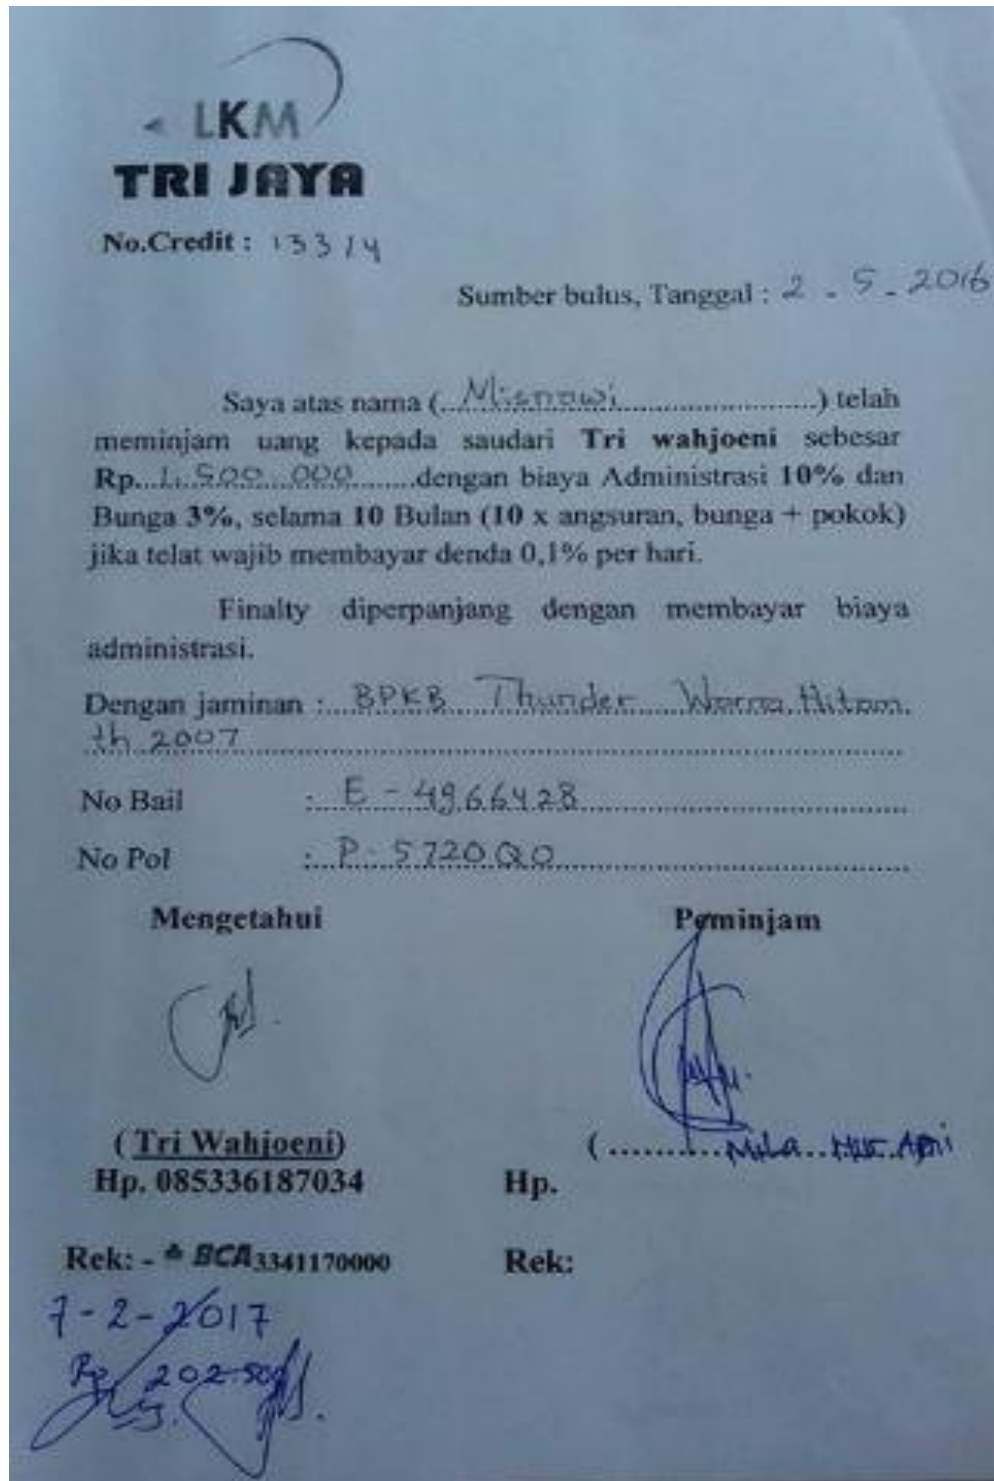 LKM
TRI JAYA
No.Credit : 13314
Sumber bulus, Tanggal : 2 - 5 - 2016
Saya atas nama ( Misnawi ) telah
meminjam uang kepada saudari Tri wahjoeni sebesar
Rp. 1.500.000 dengan biaya Administrasi 10% dan
Bunga 3%, selama 10 Bulan (10 x angsuran, bunga + pokok)
jika telat wajib membayar denda 0,1% per hari.
Finalty diperpanjang dengan membayar biaya
administrasi.
Dengan jaminan : BPKB Thunder Warna Hitam
th 2007
No Bail : E - 4966428
No Pol : P - 5720 QO
Mengetahui Peminjam
( Tri Wahjoeni) ( Mila
Hp. 085336187034 Hp.
Rek: - BCA 3341170000 Rek:
7-2-2017
Rp 202.500